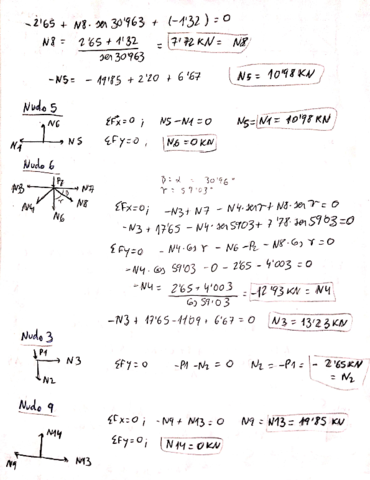 -2'65 + N8 · sen 30'963 + (-1'32) = 0
N8 = 2'65 + 1'32 / sen 30'963 = 7'72 KN = N8
-N5 = -19'85 + 2'20 + 6'67 N5 = 10'98 KN
Nudo 5
N6
N1 N5
ΣFx=0; N5 - N1 = 0 N5 = N1 = 10'98 KN
ΣFy=0, N6 = 0 KN
Nudo 6
N3 N7
N4 N6 N8
β = α = 30'96°
r = 59'03°
ΣFx=0; -N3 + N7 - N4 · sen r + N8 · sen r = 0
-N3 + 17'65 - N4 · sen 59'03 + 7'78 · sen 59'03 = 0
ΣFy=0 -N4 · Cos r - N6 - P2 - N8 · Cos r = 0
-N4 · Cos 59'03 - 0 - 2'65 - 4'003 = 0
-N4 = 2'65 + 4'003 / Cos 59'03 = -12'93 KN = N4
-N3 + 17'65 - 11'09 + 6'67 = 0 N3 = 13'23 KN
Nudo 3
P1
N3
N2
ΣFy=0 -P1 - N2 = 0 N2 = -P1 = -2'65 KN = N2
Nudo 9
N14
N9 N13
ΣFx=0; -N9 + N13 = 0 N9 = N13 = 19'85 KN
ΣFy=0; N14 = 0 KN